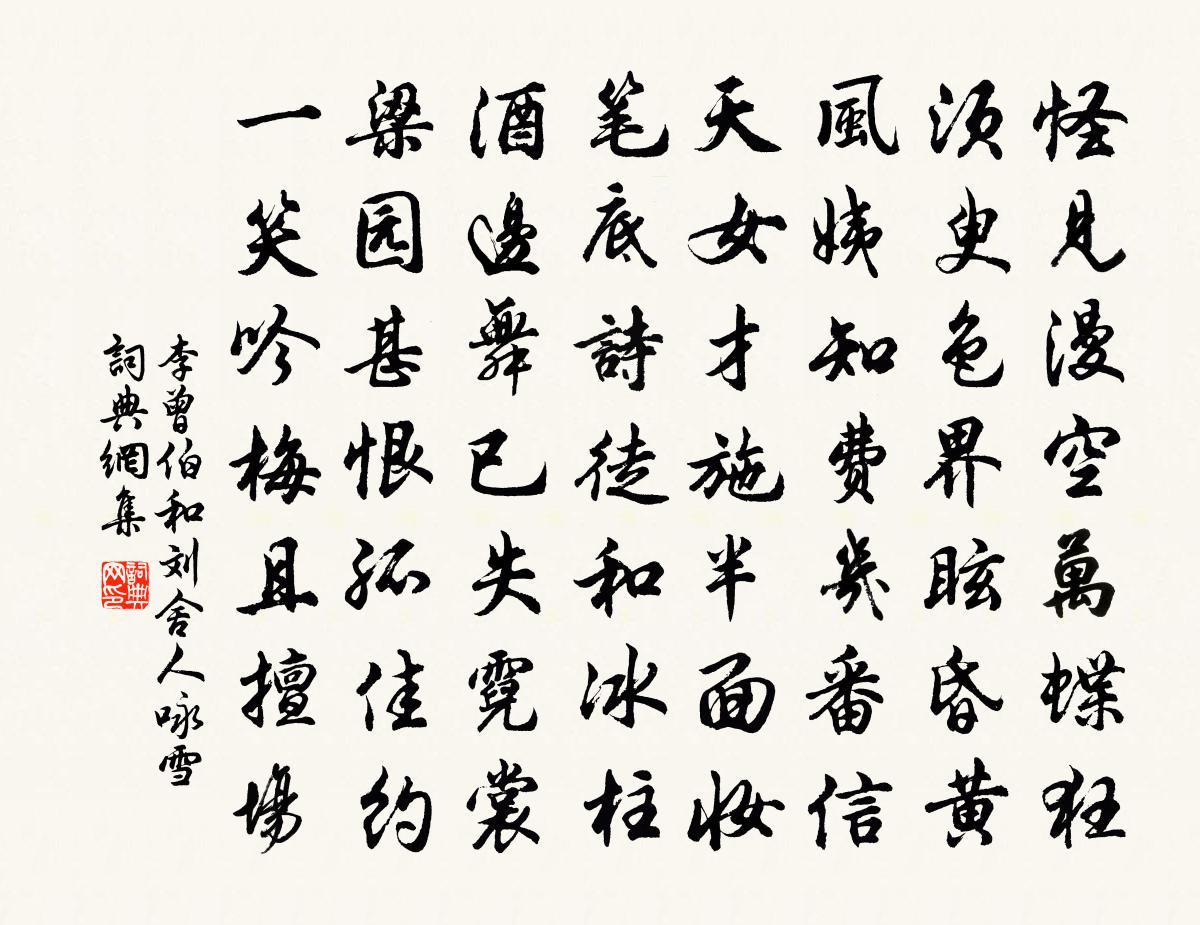 怪見漫空萬蝶狂
須臾色界眩昏黄
風姨知費幾番信
天女才施半面妝
笔底詩徒和冰柱
酒邊舞已失霓裳
梁园甚恨孤佳约
一笑吟梅且擅場
李曾伯和刘舍人咏雪
詞典網集
詞典
网印